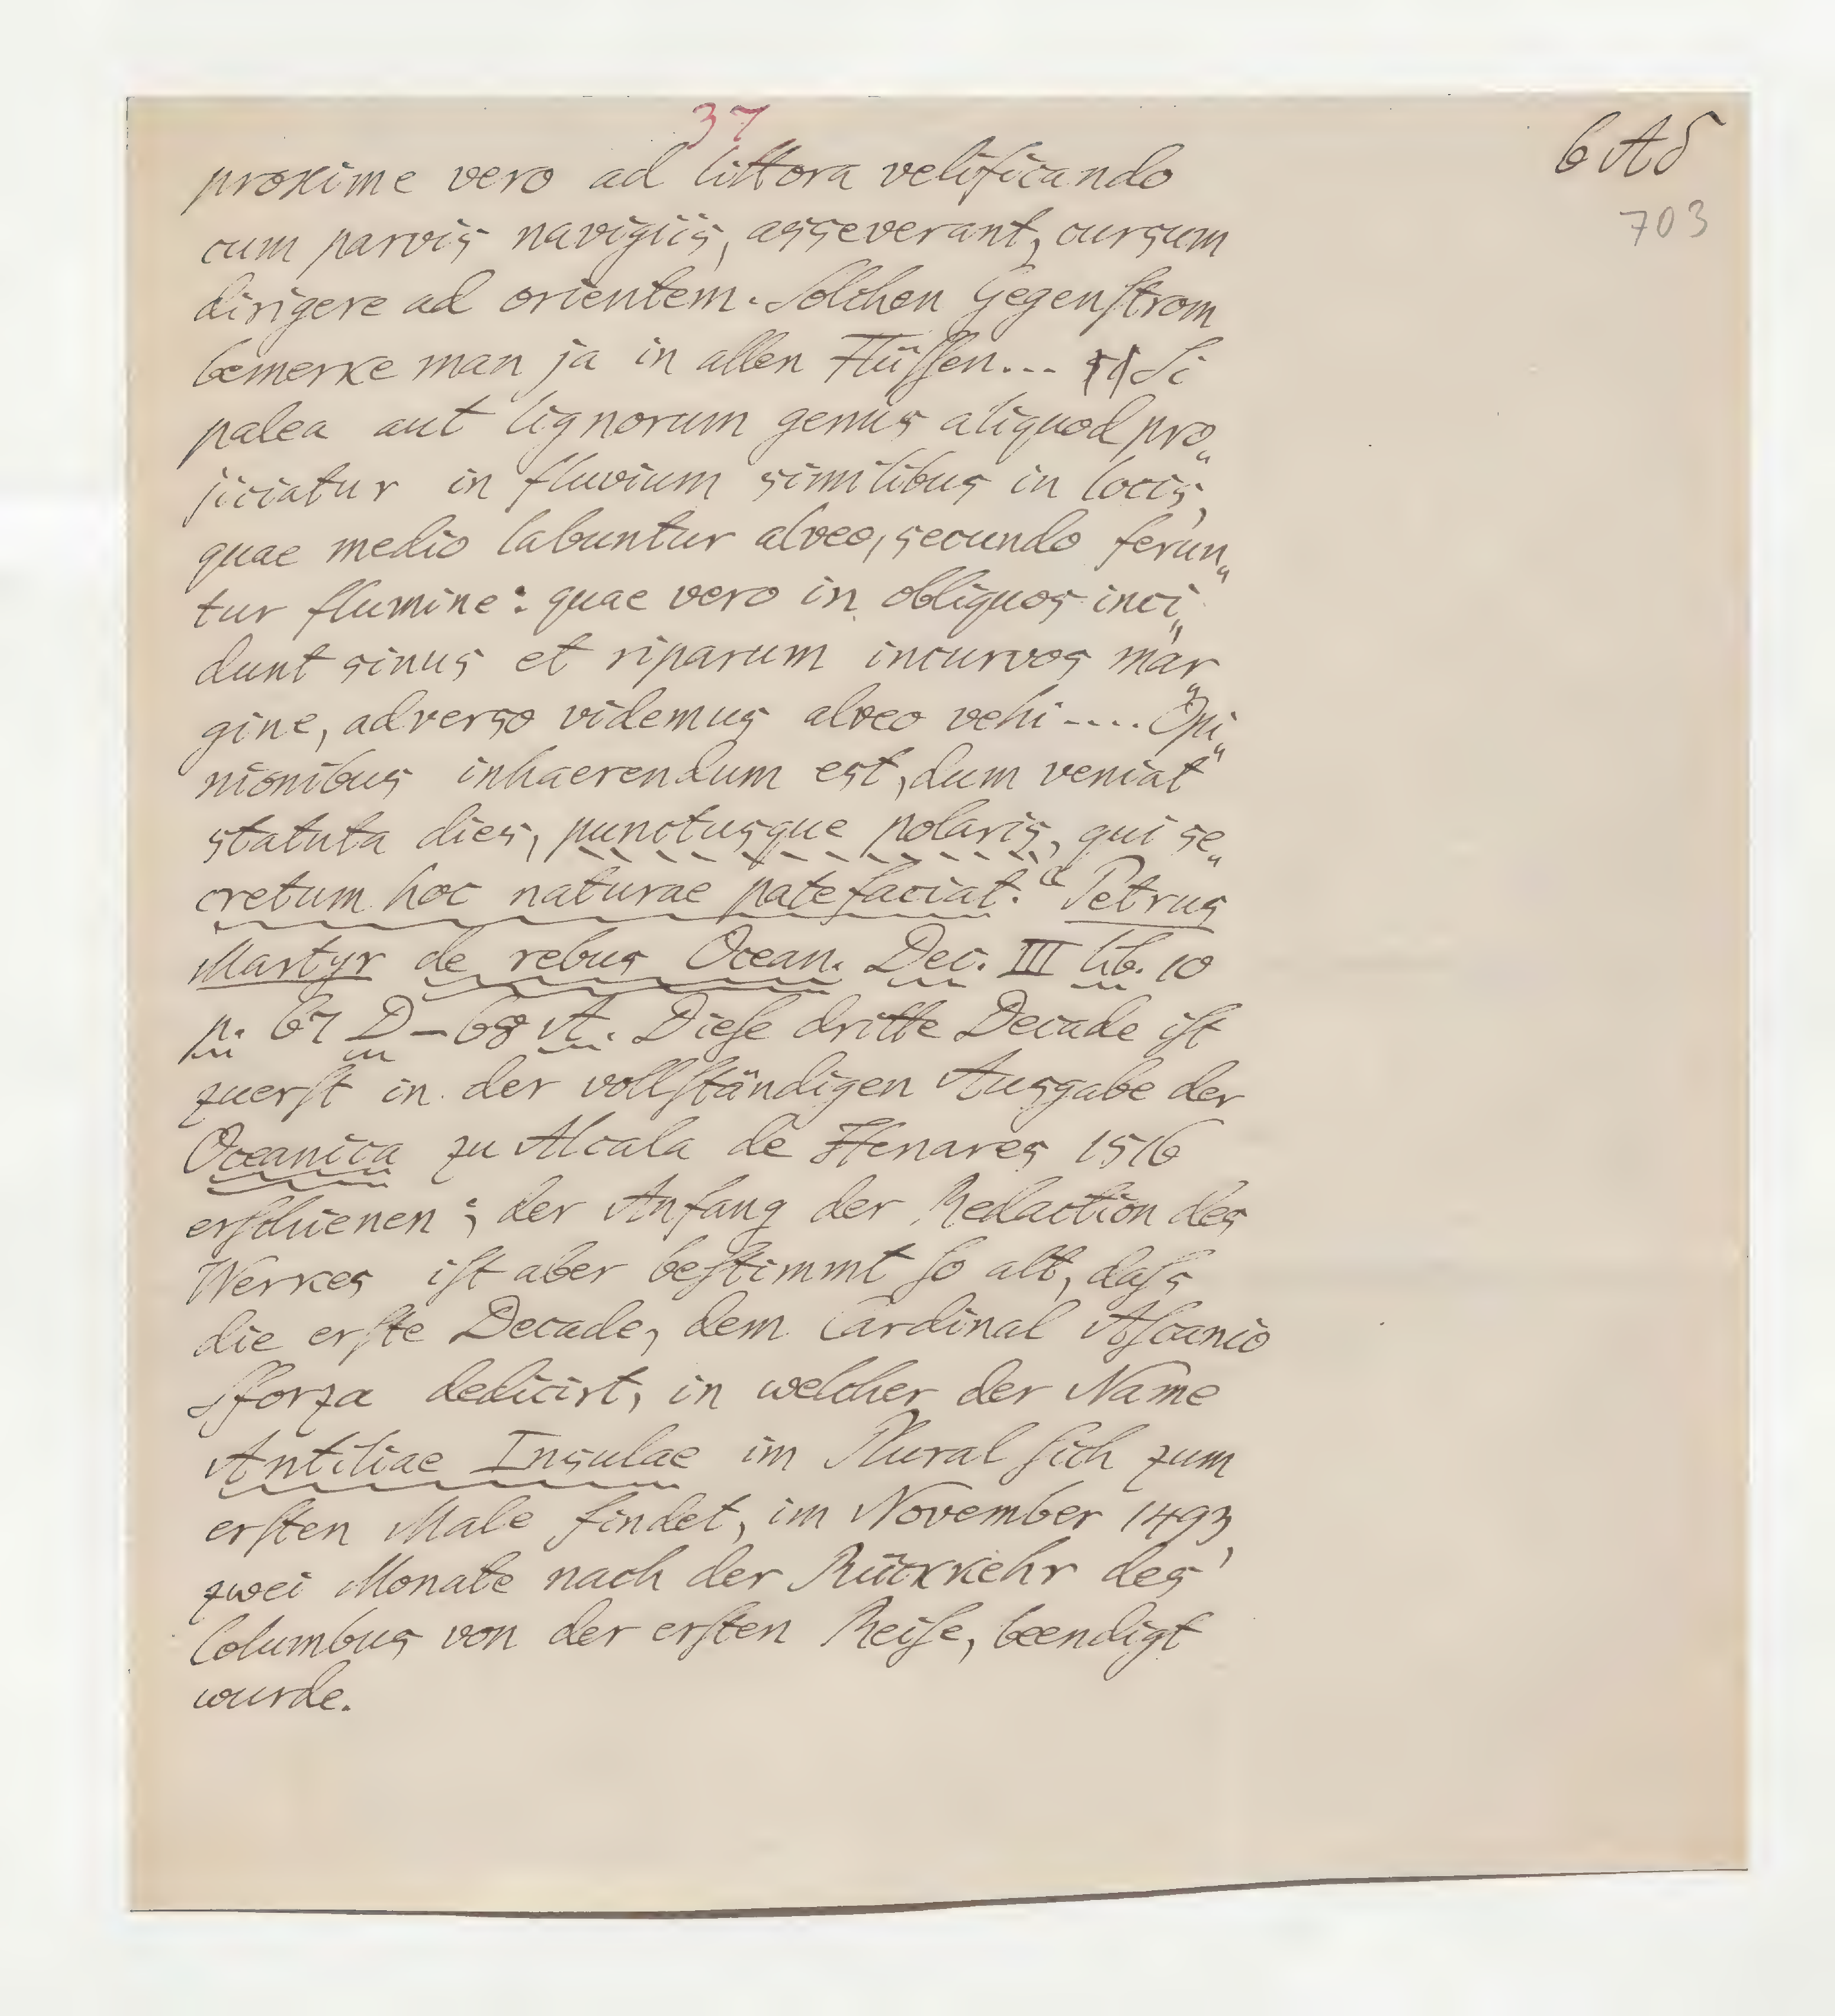 37
6 Aδ
703
proxime vero ad littora velificando
cum parvis navigiis, asseverant, cursum
dirigere ad orientem. Solchen Gegenſtrom
bemerke man ja in allen Flüſſen... Si
palea aut lignorum genus aliquod pro„
jiciatur in fluvium similibus in locis,
quae medio labuntur alveo, secundo ferun„
tur flumine: quae vero in obliquos inci„
dunt sinus et riparum incurvos mar„
gine, adverso videmus alveo vehi .... Opi„
nionibus inhaerendum est, dum veniat
statuta dies, punctusque polaris, qui se„
cretum hoc naturae patefaciat.“ Petrus
Martyr de rebus Ocean. Dec. III lib. 10
p. 67 D – 68 A. Dieſe dritte Decade iſt
zuerſt in der vollſtändigen Ausgabe der
Oceanica zu Alcala de Henares 1516
erſchienen; der Anfang der Redaction des
Werkes iſt aber beſtimmt ſo alt, daſs
die erſte Decade, dem Cardinal Aſcanio
Sforza dedicirt, in welcher der Name
Antiliae Insulae im Plural ſich zum
erſten Male findet, im November 1493,
zwei Monate nach der Rückkehr des
Columbus von der erſten Reiſe, beendigt
wurde.